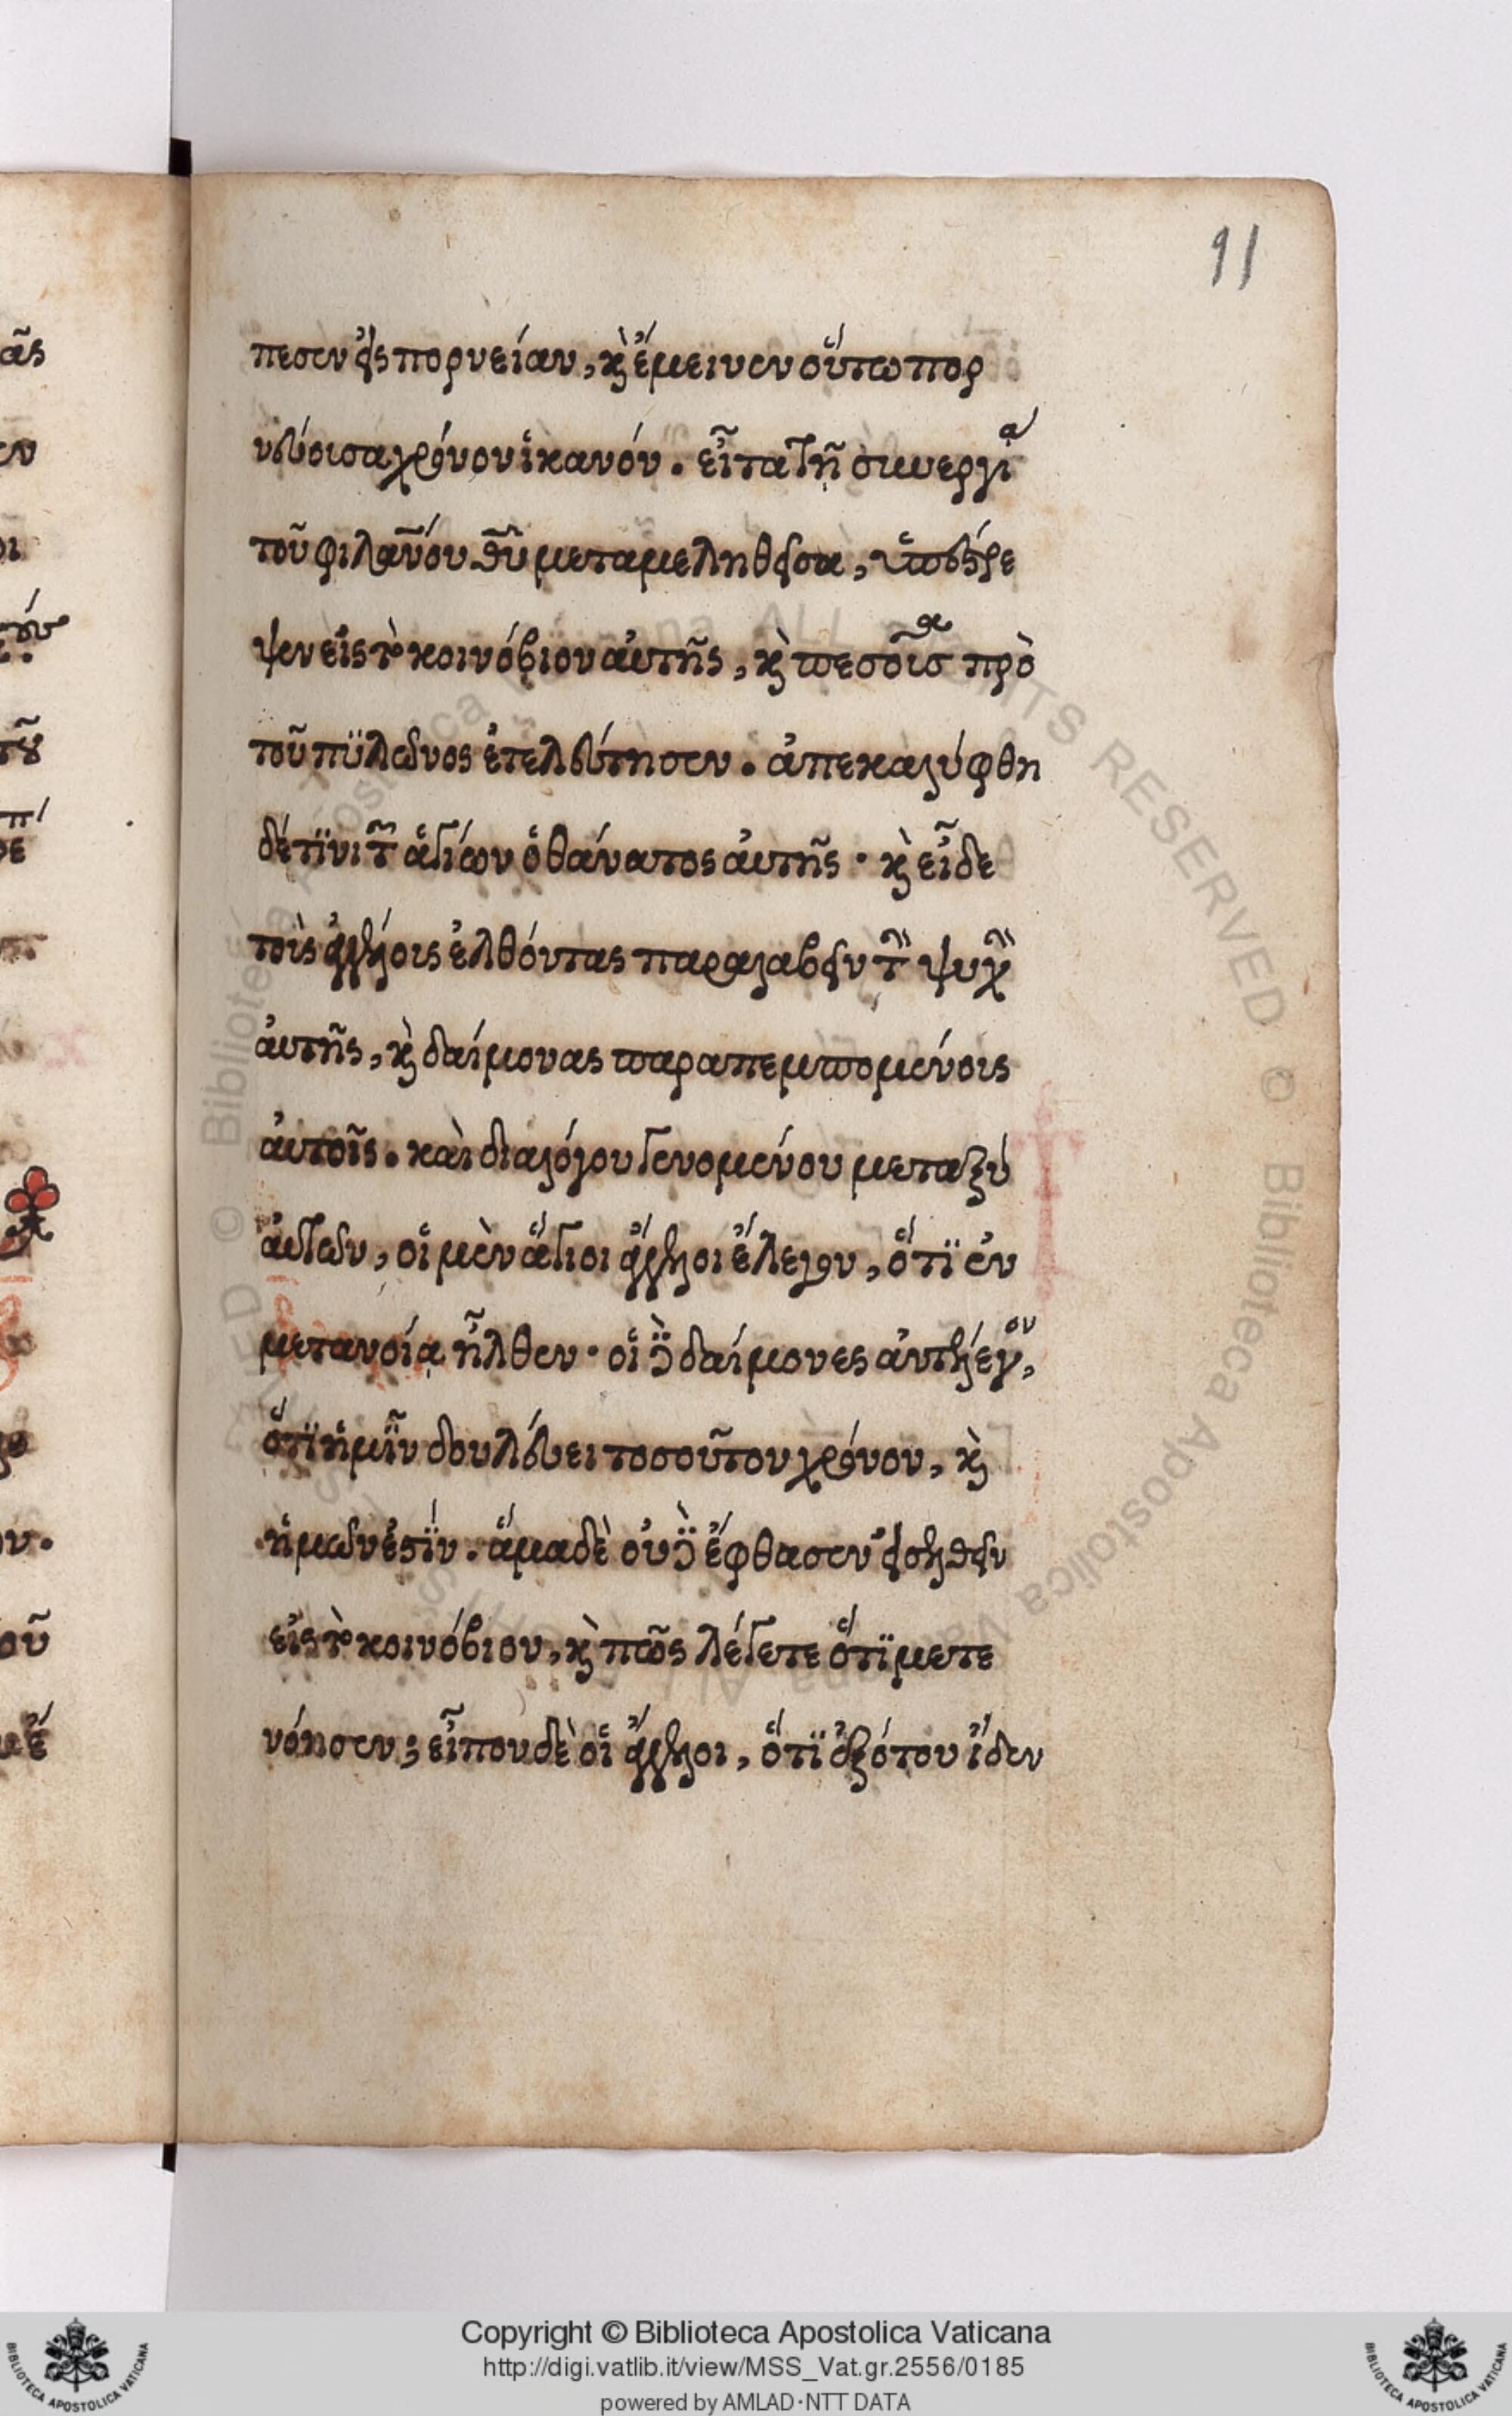 91
πεσεν εἰς πορνείαν, κ̀ ἔμεινεν οὕτω πορ
νεύουσα χρόνον ἱκανόν. εἶτα τῇ συνεργίᾳ
τοῦ φιλαν̅ου θ̅υ μεταμεληθεῖσα, ὑπέστρε
ψεν εἰς τὸ κοινόβιον αὐτῆς, κ̀ πεσοῦσα πρὸ
τοῦ πϋλῶνος ἐτελεύτησεν. ἀπεκαλύφθη
δέ τϊνι τῶν ἁγίων ὁ θάνατος αὐτῆς · κ̀ εἶδε
τοὺς ἀγγέλους ἐλθόντας παραλαβεῖν τὴν ψυχὴν
αὐτῆς, κ̀ δαίμονας παραπεμπομένους
αὐτοῖς. καὶ διαλόγου γενομένου μεταξύ
αὐτῶν, οἱ μὲν ἅγιοι ἄγγελοι ἔλεγον, ὅτϊ ἐν
μετανοίᾳ ἦλθεν · οἱ δὲ δαίμονες ἀντέλεγον,
ὅτϊ ἡμῖν δουλεύει τοσοῦτον χρόνον, κ̀
ἡμῶν ἐστϊν. ἅμα δὲ οὐδὲ ἔφθασεν εἰσελθεῖν
εἰς τὸ κοινόβιον, κ̀ πῶς λέγετε ὅτϊ μετε
νόησεν; εἶπον δὲ οἱ ἄγγελοι, ὅτϊ ἐξότου ἴδεν
Copyright © Biblioteca Apostolica Vaticana
http://digi.vatlib.it/view/MSS_Vat.gr.2556/0185
powered by AMLAD·NTT DATA